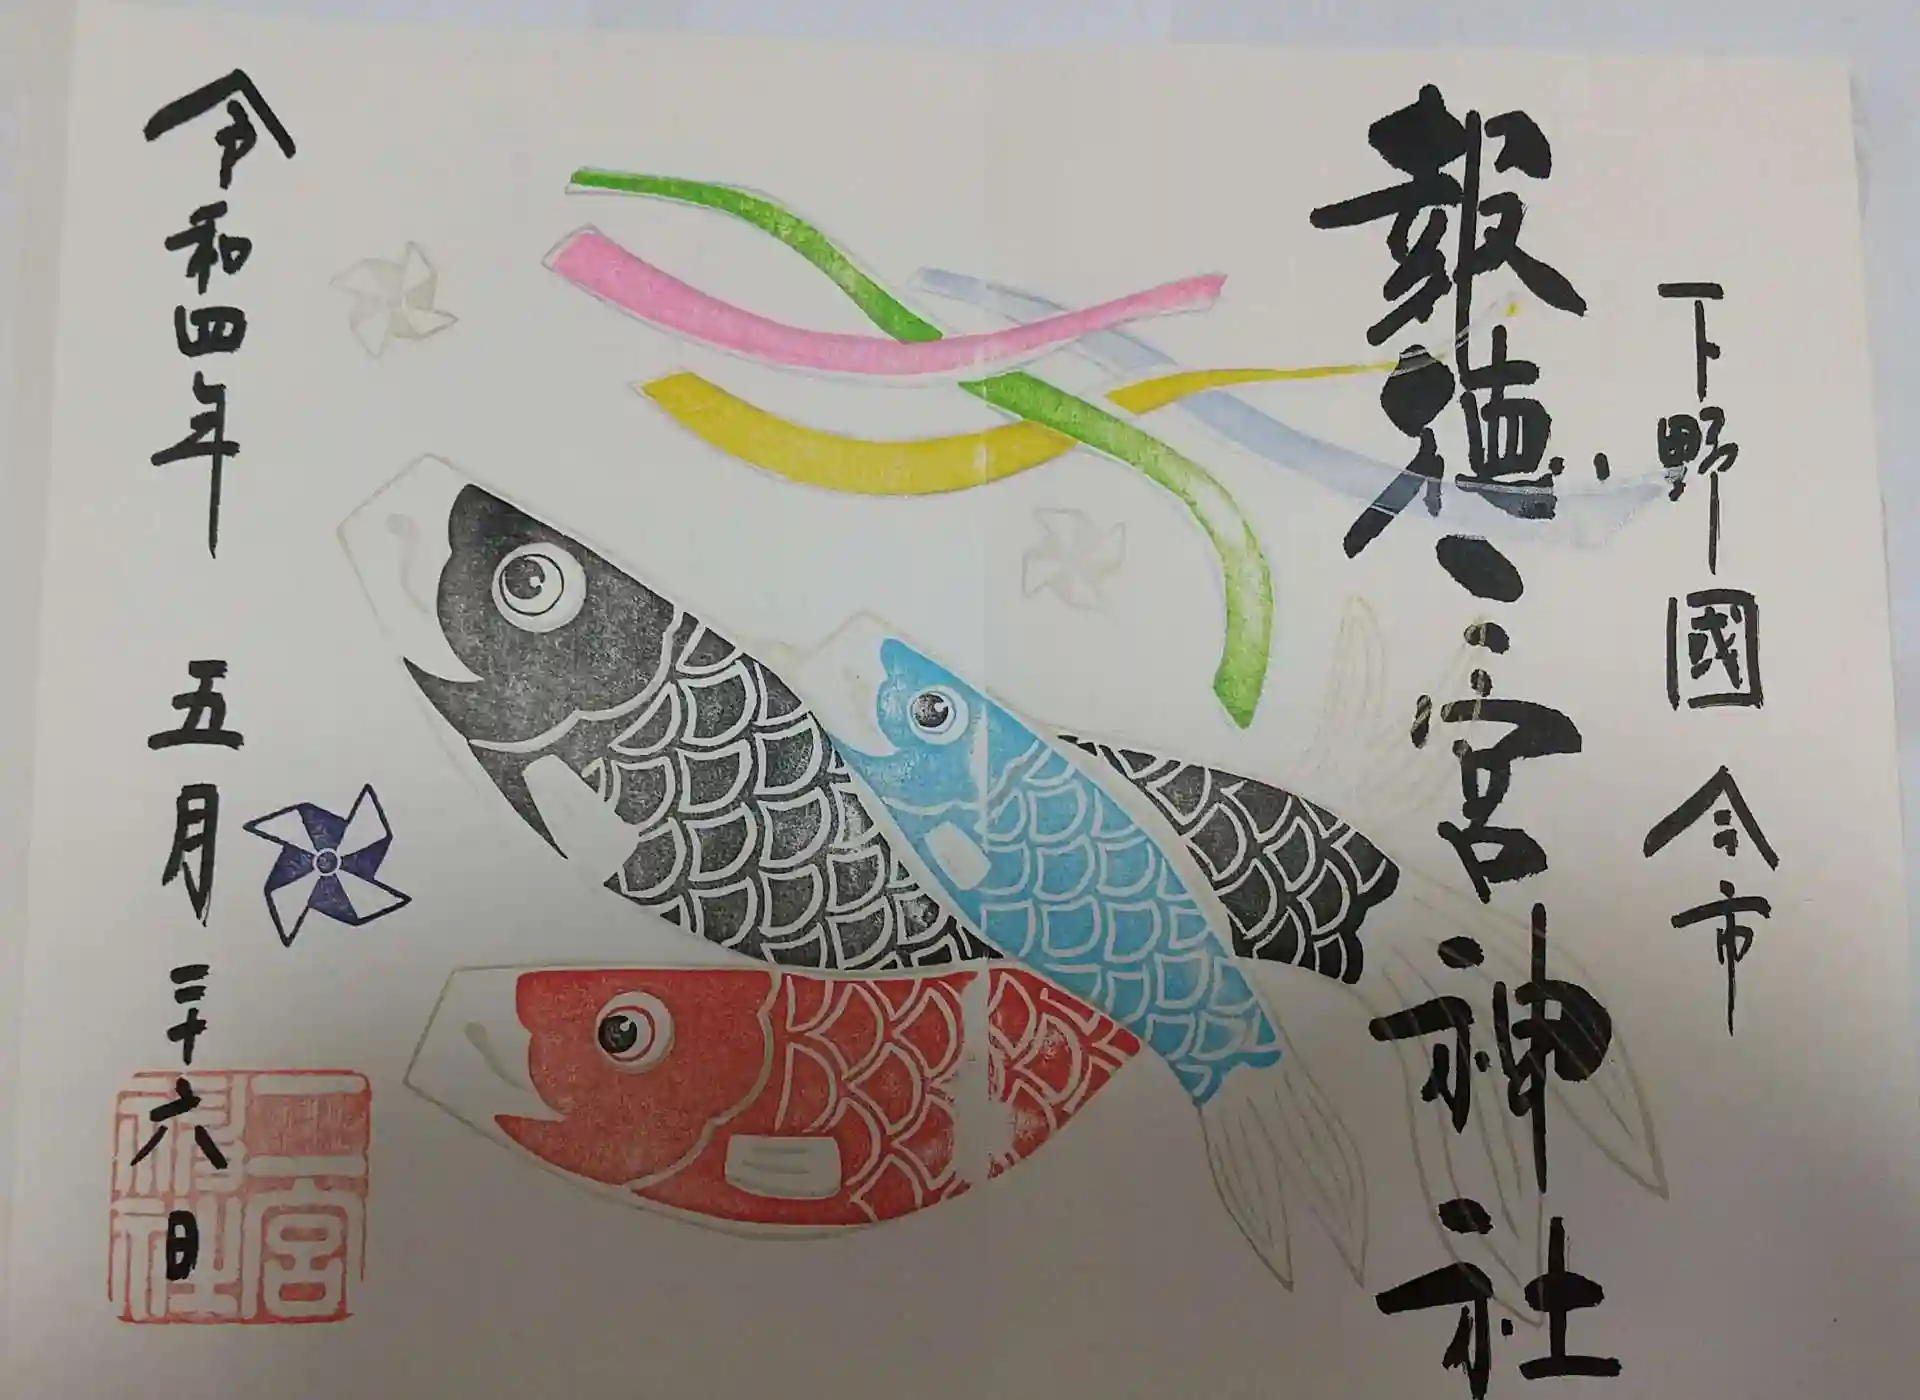 下野國 今市
報徳二宮神社
令和四年 五月二十六日
二宮
神社